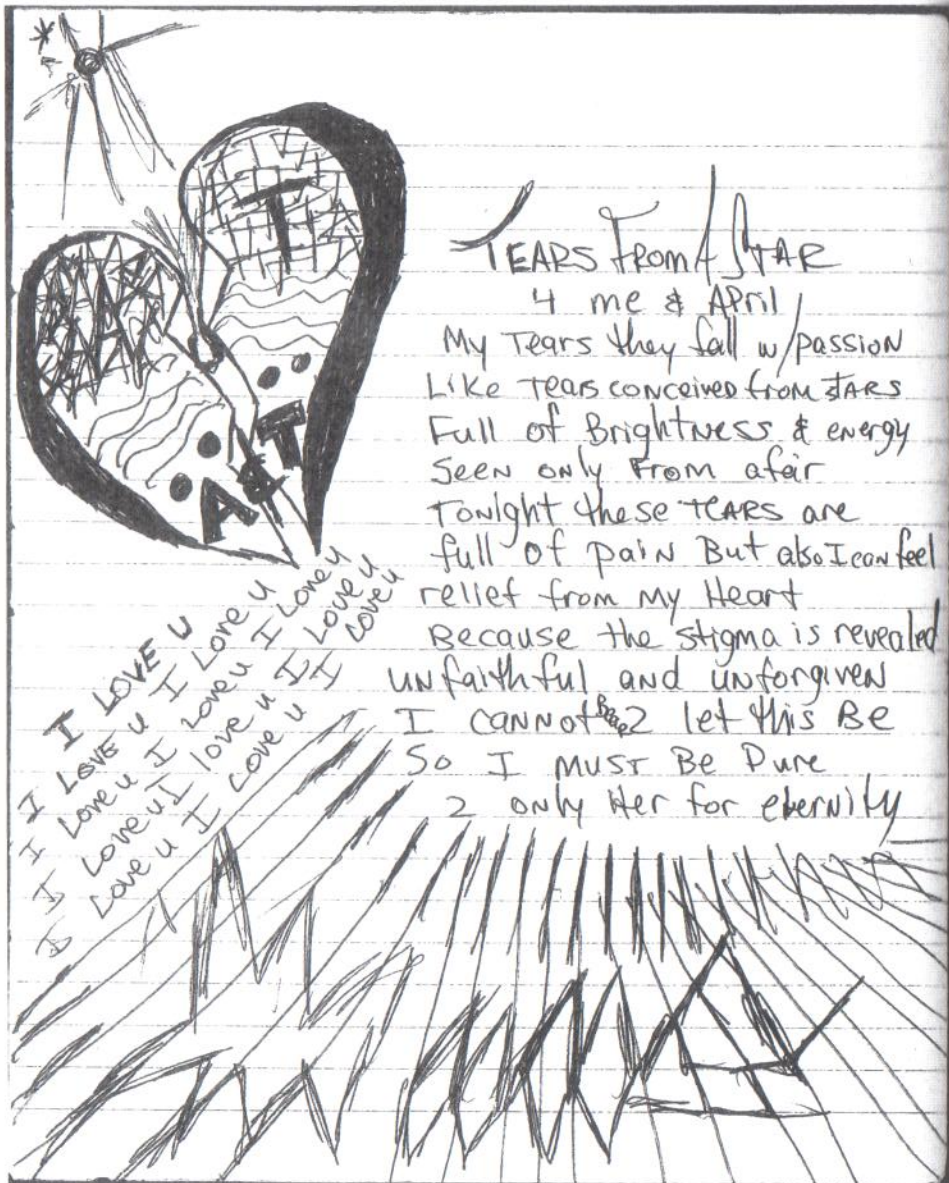 T
T
A & T
TEARS From A STAR
4 me & April
My Tears they fall w/passion
Like Tears conceived from STARS
Full of Brightness & energy
Seen only From afair
Tonight these TEARS are
full of pain But also I can feel
relief from My Heart
Because the stigma is revealed
unfaithful and unforgiven
I cannot 2 let this Be
So I must Be Pure
2 only Her for eternity
I LOVE U
I Love u I Love u
I Love u I Love u I Love u
I Love u I love u I Love u
I Love u I Love u I Love u